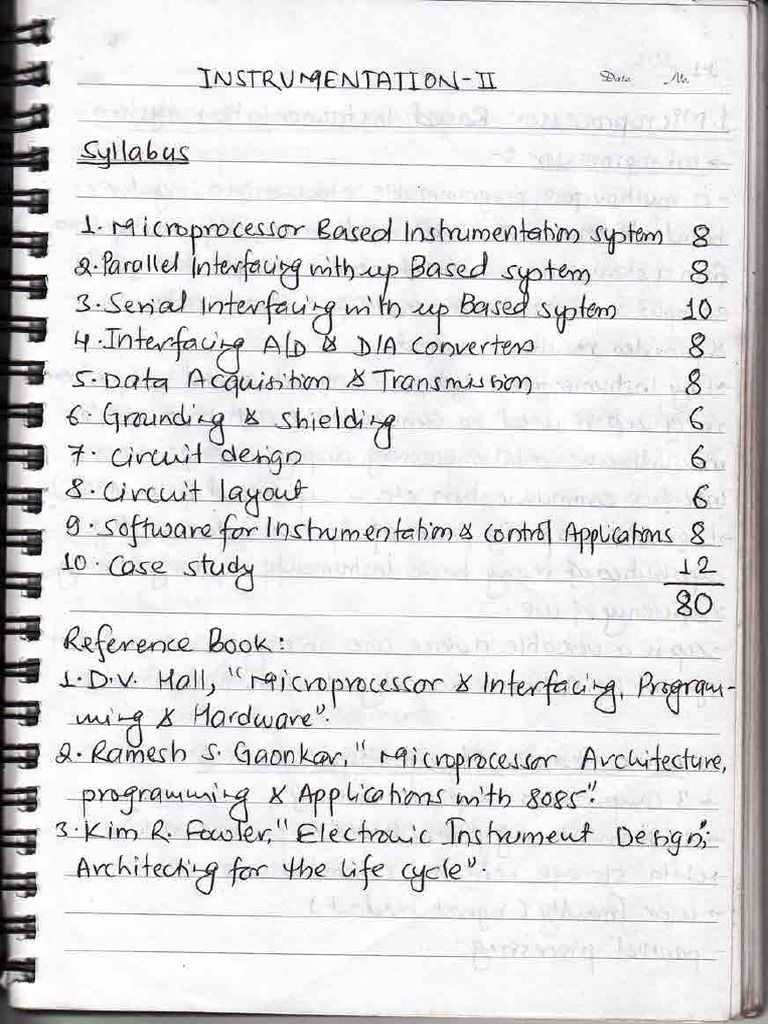 INSTRUMENTATION-II
Date No
Syllabus
1. Microprocessor Based Instrumentation system 8
2. Parallel Interfacing with up Based system 8
3. Serial Interfacing with up Based system 10
4. Interfacing A/D & D/A Converters 8
5. Data Acquisition & Transmission 8
6. Grounding & shielding 6
7. circuit design 6
8. Circuit layout 6
9. Software for Instrumentation & control Applications 8
10. Case study 12
80
Reference Book:
1. D.V. Hall, "Microprocessor & Interfacing, Program-
ming & Hardware".
2. Ramesh S. Gaonkar, "Microprocessor Architecture,
programming & Applications with 8085".
3. Kim R. Fowler, "Electronic Instrument Design;
Architecting for the life cycle".